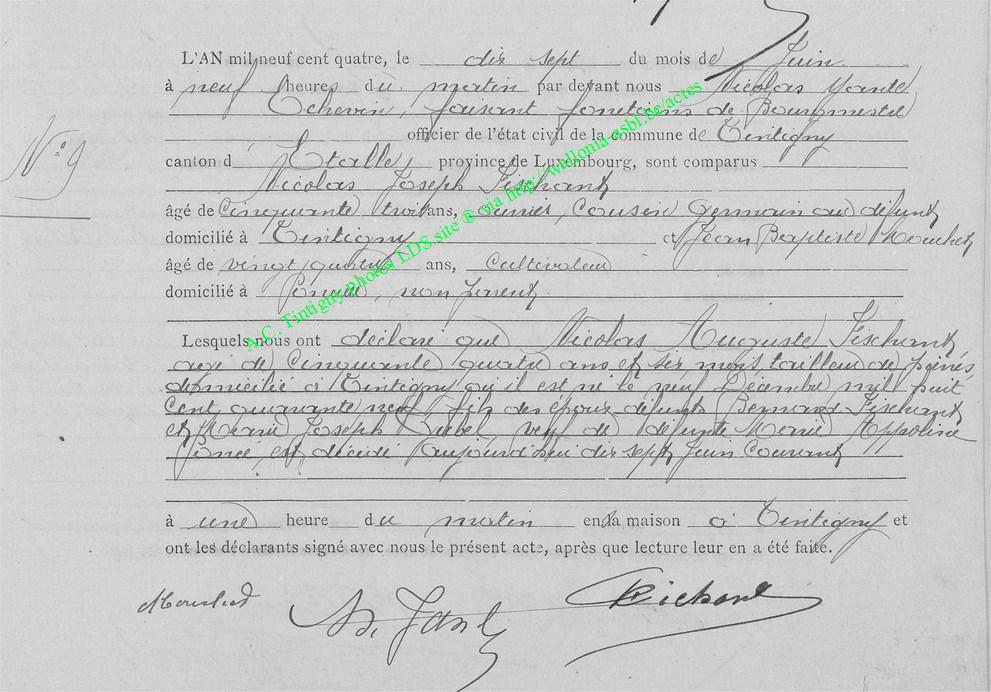 L'AN mil neuf cent quatre, le dix sept du mois de Juin
à neuf heures du matin par devant nous Nicolas
Echevin faisant fonctions de Bourgmestre
officier de l'état civil de la commune de Tintigny
N° 9
canton d Etalle, province de Luxembourg, sont comparus
Nicolas Joseph Fischant
âgé de Cinquante trois ans, ouvrier, Cousin Germain au défunt
domicilié à Tintigny et Jean Baptiste Mouchet
âgé de vingt quatre ans, Cultivateur
domicilié à non parent
Lesquels nous ont déclaré que Nicolas Auguste Fischant
agé de Cinquante quatre ans et six mois tailleur de pierres
domicilié à Tintigny où il est né le neuf Décembre mil huit
Cent quarante neuf, fils des époux défunts Bernard Fischant
et Marie Joseph veuf de défunte Marie Appoline
est décédé aujourd'hui dix sept Juin Courant
à une heure du matin en sa maison à Tintigny et
ont les déclarants signé avec nous le présent acte, après que lecture leur en a été faite.
Mouchet
A.C. Tintigny photos LDS site ® via http://wallonia-asbl.be/actes